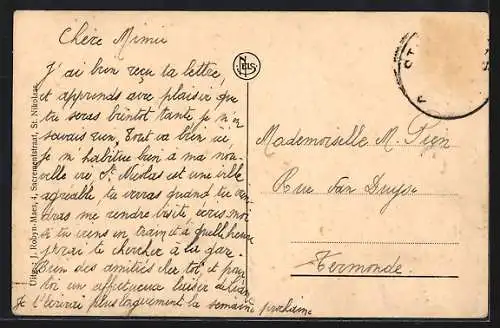 Chère Mimie
J'ai bien reçu ta lettre,
et apprends avec plaisir que
tu seras bientôt tante, je n'en
savais rien. Tout va bien ici,
je m'habitue bien à ma nou-
velle vie, St. Nicolas est une ville
agréable, tu verras quand tu vien-
dras me rendre visite, écris-moi
si tu viens en train et à quelle heure
j'irai te chercher à la gare.
Bien des amitiés chez toi, et pour
toi un affectueux baiser de
Je t'écrirai plus longuement la semaine prochaine
Uitg.: J. Robyn-Maes, 4, Sacrementstraat, St. Nikolaas
NELS
Mademoiselle M. Pien
Rue Van Duyse
Termonde.